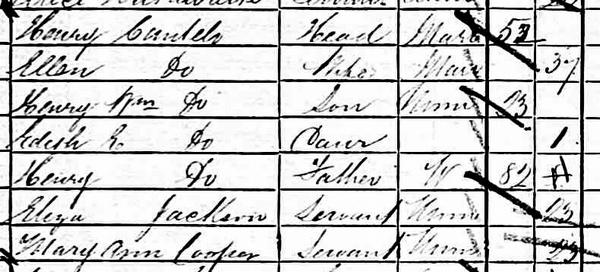 Henry Cantel Head Mar 53
Ellen Do Wife Mar 37
Henry Wm Do Son Unm 23
Edith L. Do Daur 1
Henry Do Father W 82
Eliza Jackson Servant Unm 23
Mary Ann Cooper Servant Unm